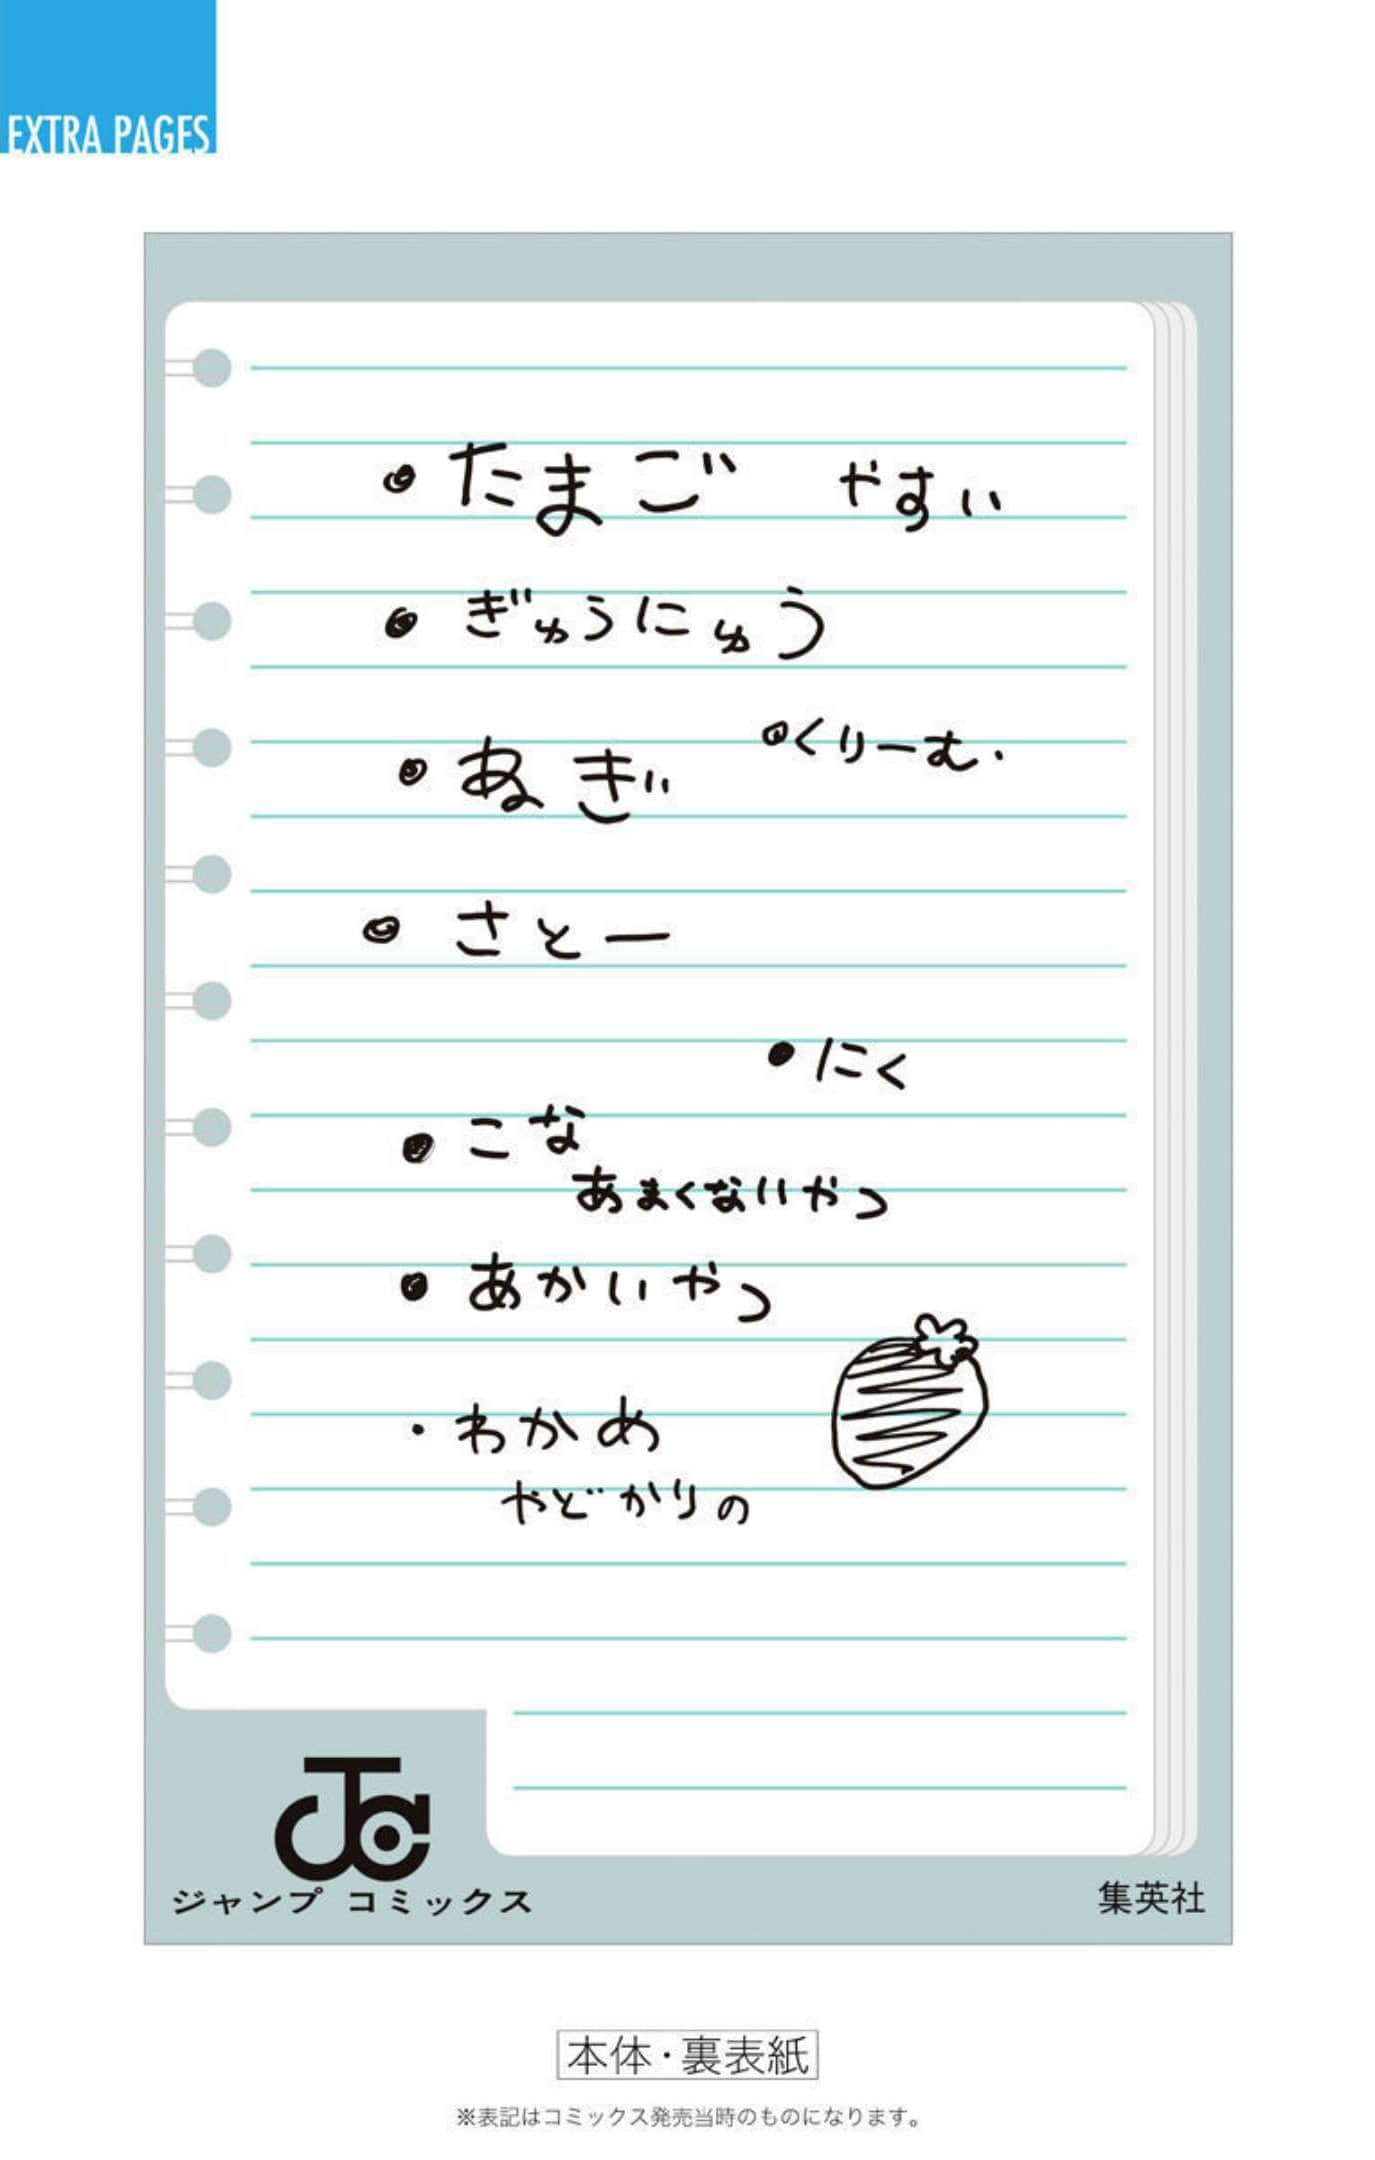 EXTRA PAGES
たまご　やすい
ぎゅうにゅう
くりーむ.
ぬぎ
さとー
にく
こな
あまくないやつ
あかいやつ
わかめ
やどかりの
ジャンプ コミックス
集英社
本体・裏表紙
※表記はコミックス発売当時のものになります。